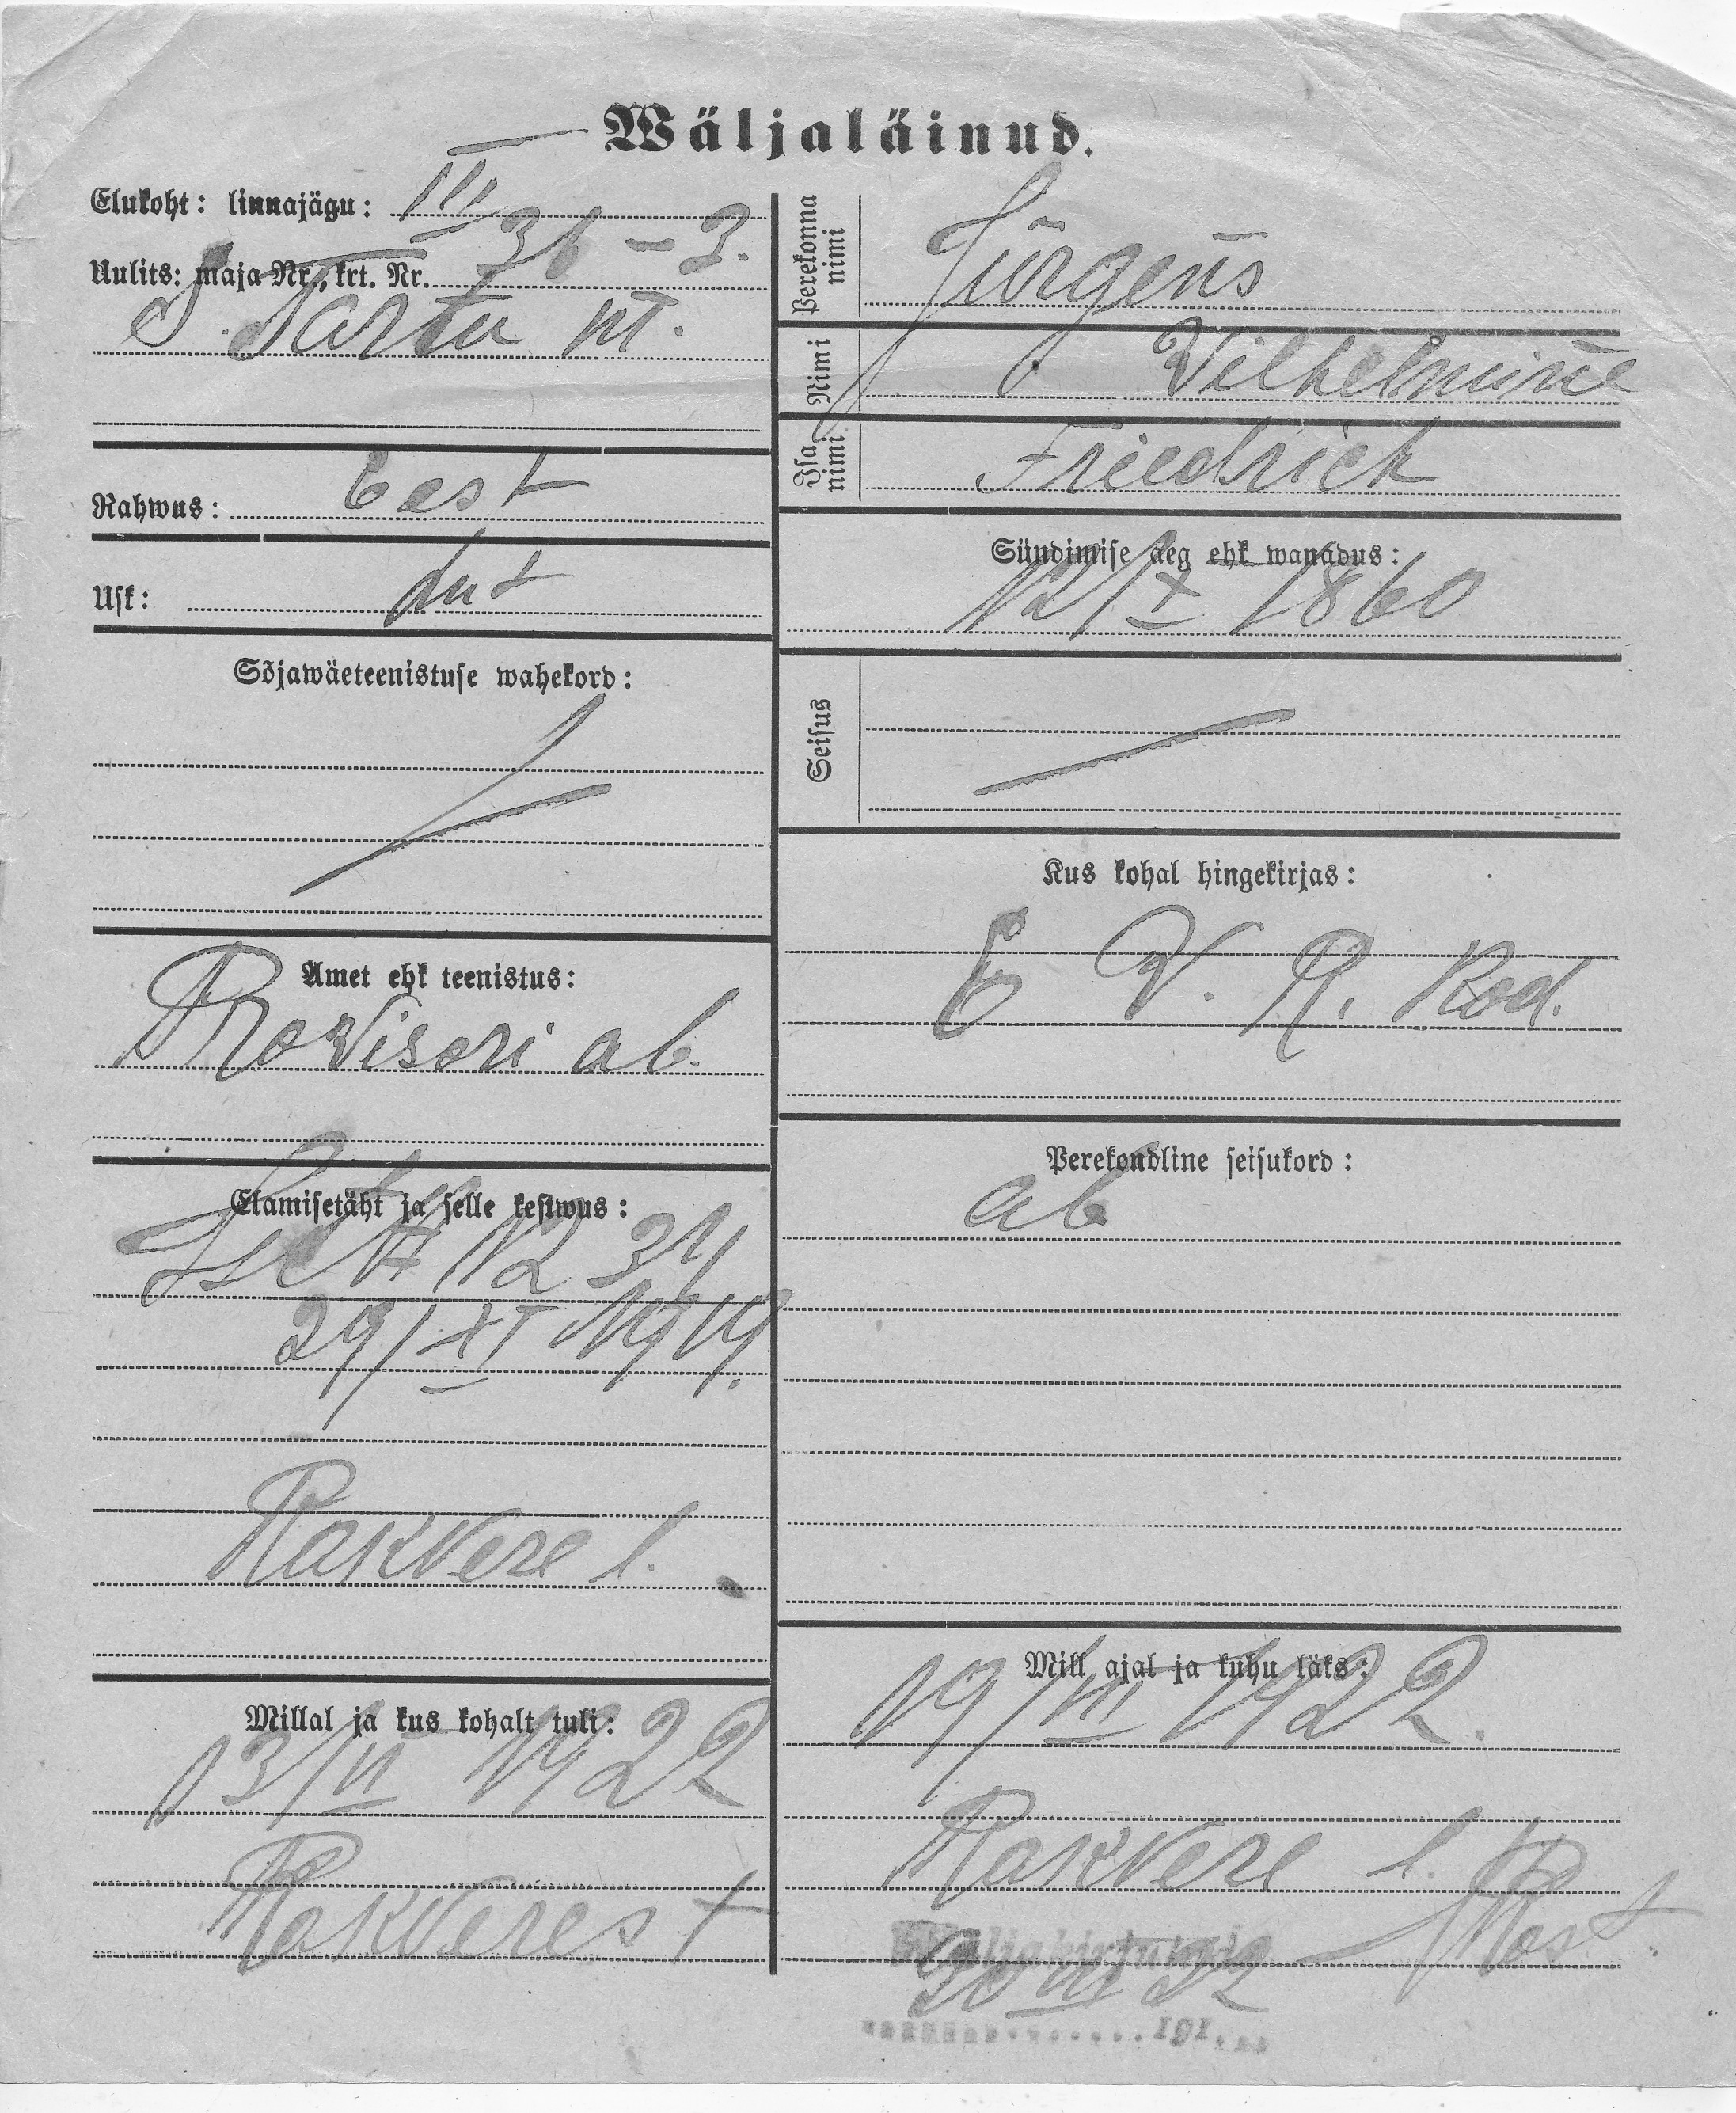 Wäljaläinud.
Elukoht: linnajägu: III
Uulits: maja Nr., krt. Nr. 36 – 3.
S. Tartu mt.
Rahwus: Eest
Usk: Lut
Sõjawäeteenistuse wahekord:
Amet ehk teenistus:
Provisori ab.
Elamisetäht ja selle kestwus:
1234
29/XI 1919.
Rakvere l.
Millal ja kus kohalt tuli:
13/VI 1922
Rakverest
Perekonna nimi Jürgens
Nimi Vilhelmine
Isa nimi Friedrich
Sündimise aeg ehk wanadus:
12/X 1860
Seisus
Kus kohal hingekirjas:
E V. R. Kod.
Perekondline seisukord:
ab
Mill ajal ja kuhu läks:
19/VII 1922.
Rakvere l.
Wäljakirjutatud
20 VII 22
191